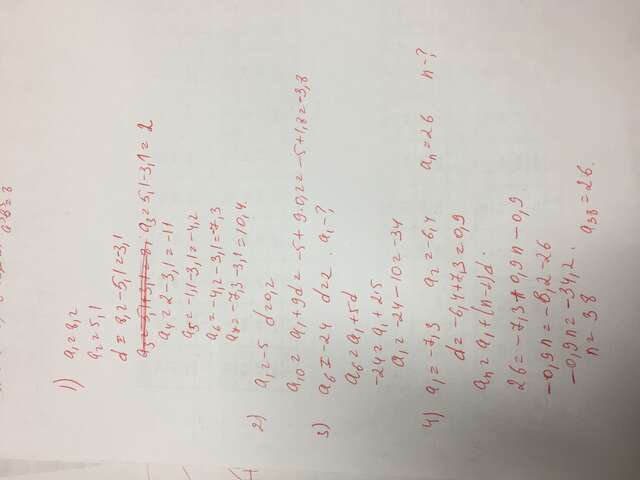 1) a₁=8,2
a₂=5,1
d=8,2-5,1=3,1
a₃=5,1-3,1=2
a₄=2-3,1=-1,1
a₅=-1,1-3,1=-4,2
a₆=-4,2-3,1=-7,3
a₇=-7,3-3,1=10,4
2) a₁=-5 d=0,2
a₁₀=a₁+9d=-5+9·0,2=-5+1,8=-3,8
3) a₆=-24 d=2. a₁-?
a₆=a₁+5d
-24=a₁+2·5
a₁=-24-10=-34
4) a₁=-7,3 a₂=-6,4 aₙ=26 n-?
d=-6,4+7,3=0,9
aₙ=a₁+(n-1)d.
26=-7,3+0,9n-0,9
-0,9n=-8,2-26
-0,9n=-34,2.
n=38 a₃₈=26.